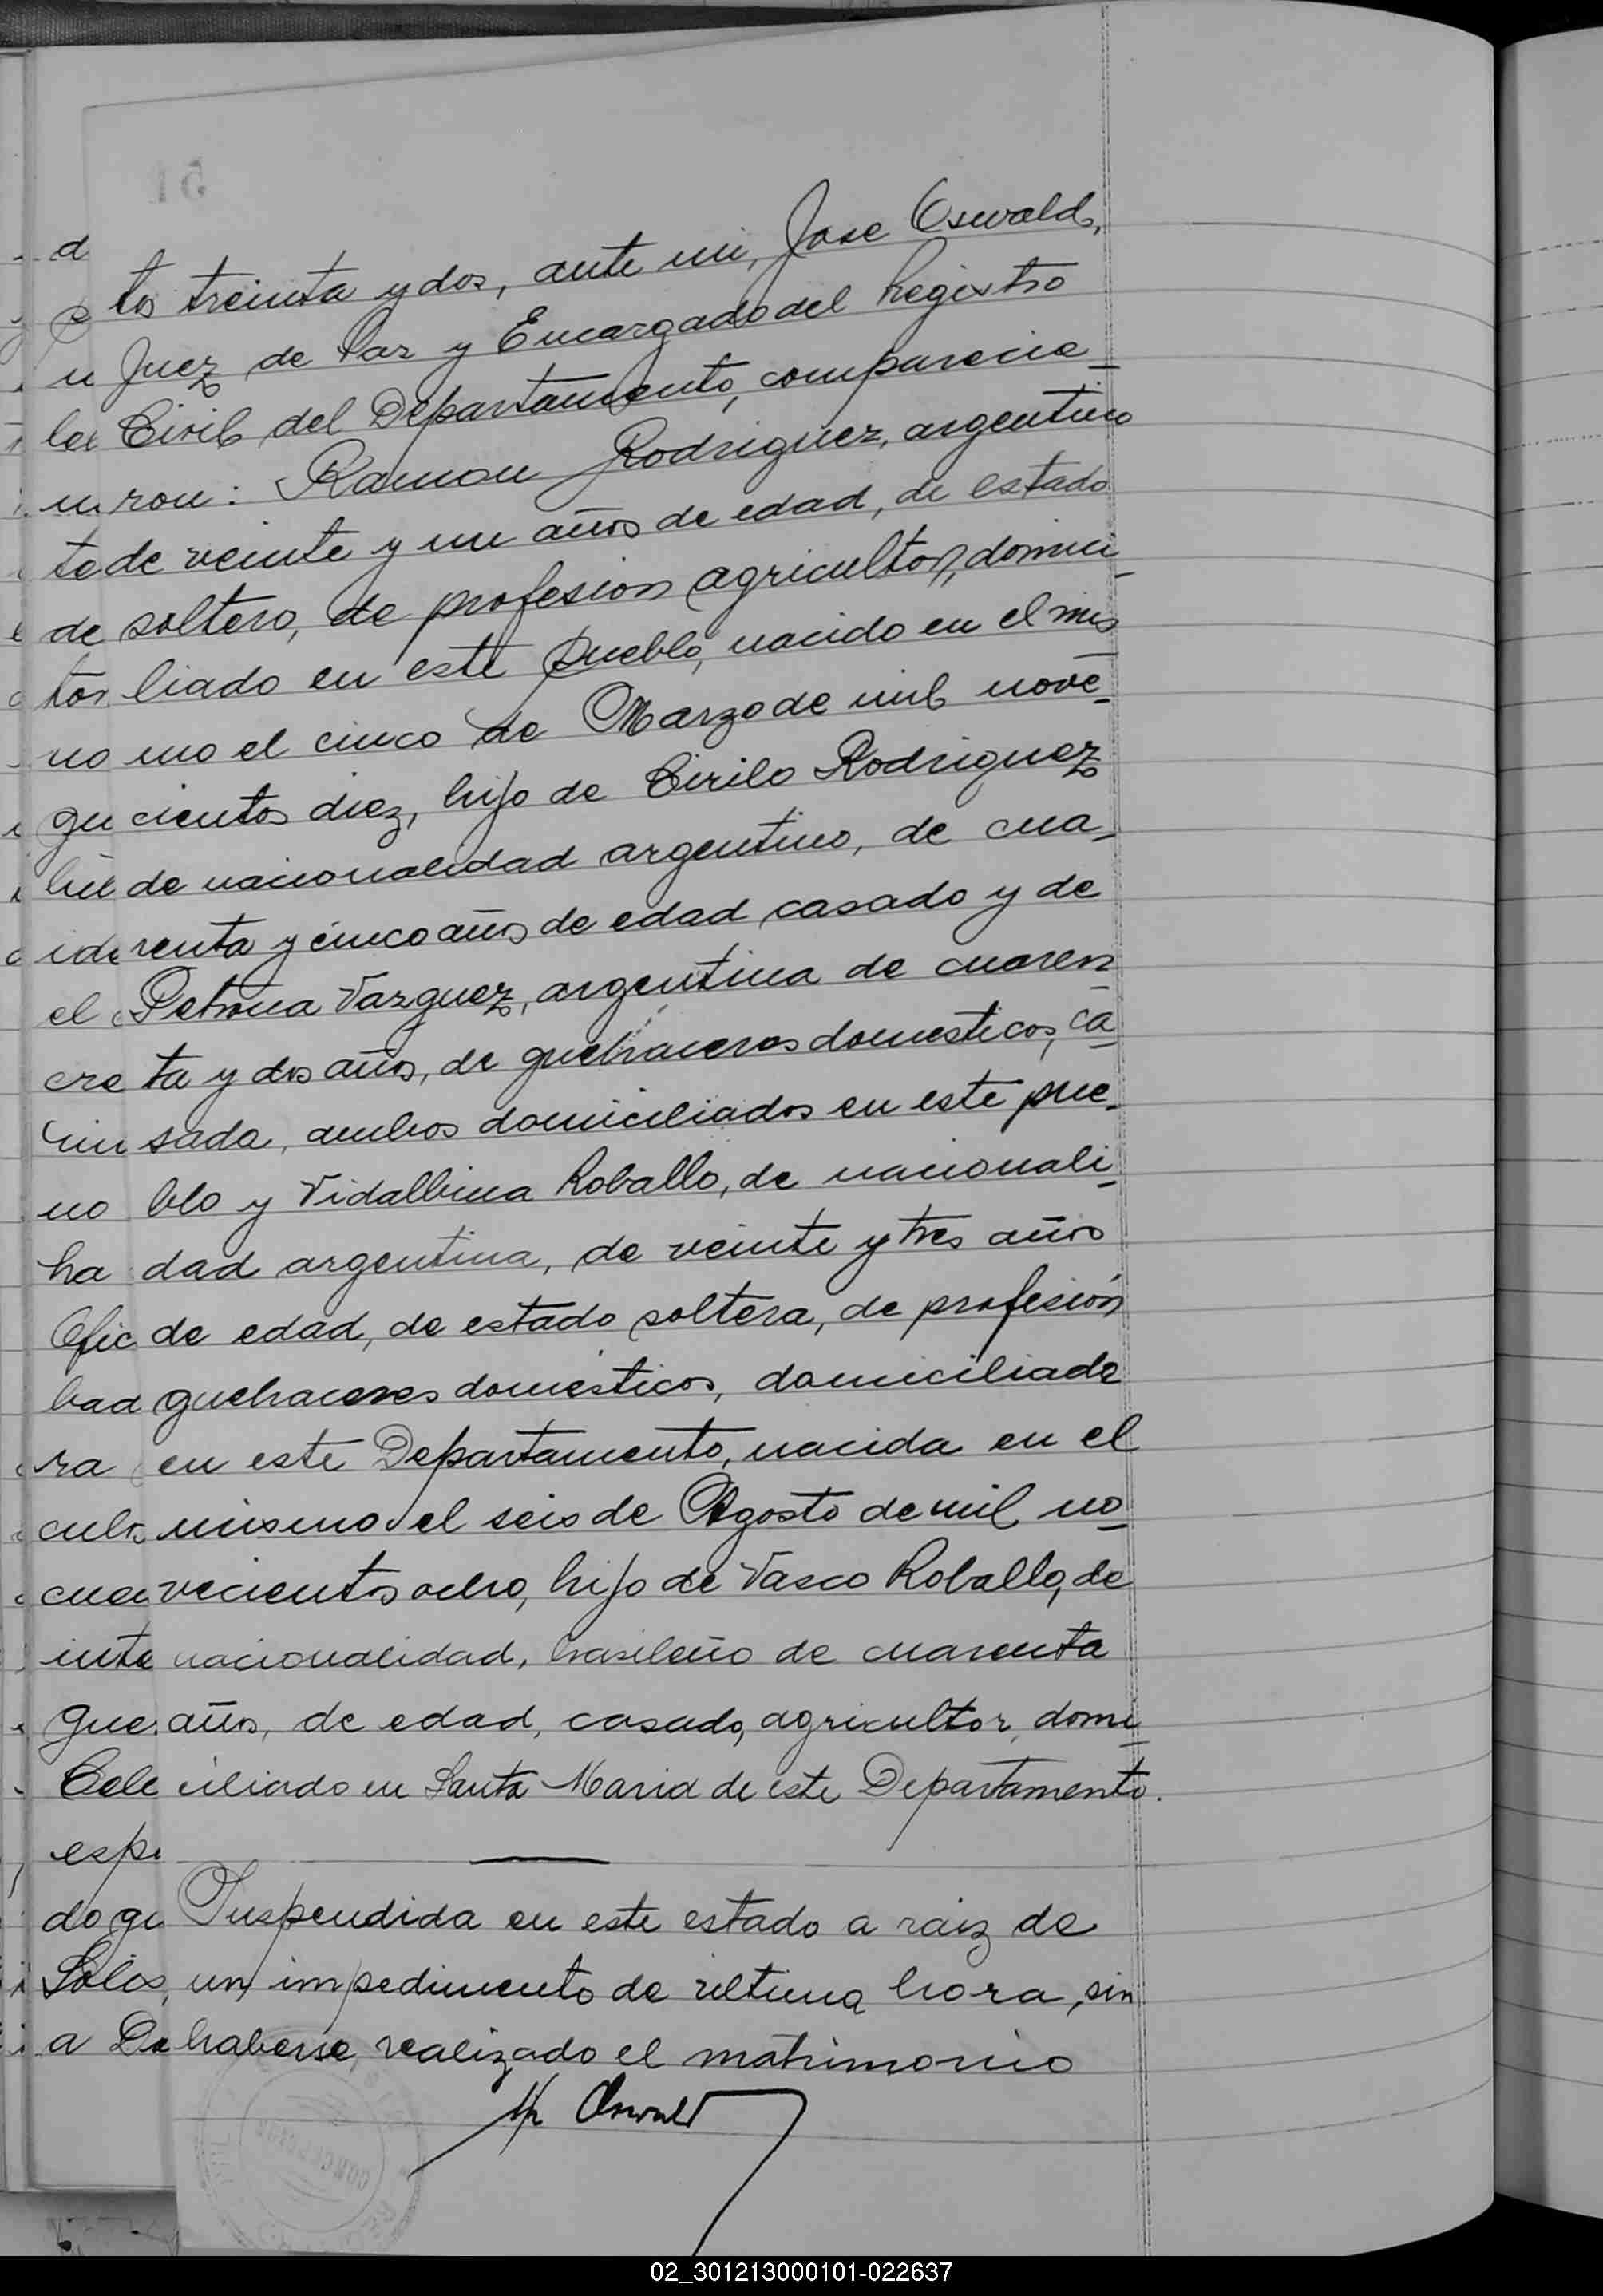 51
tos treinta y dos, ante mi, Jose Oswald,
Juez de Paz y Encargado del Registro
Civil del Departamento, comparecie_
ron: Ramon Rodriguez, argentino
de veinte y un años de edad, de estado
soltero, de profesion agricultor, domici_
liado en este pueblo, nacido en el mis_
mo el cinco de Marzo de mil nove_
cientos diez, hijo de Cirilo Rodriguez
de nacionalidad argentino, de cua_
renta y cinco años de edad casado y de
Petrona Vazquez, argentina de cuaren_
ta y dos años, de quehaceres domesticos, ca_
sada, ambos domiciliados en este pue_
blo y Vidalbina Roballo, de nacionali_
dad argentina, de veinte y tres años
de edad, de estado soltera, de profesión
quehaceres domésticos, domiciliada
en este Departamento, nacida en el
mismo el seis de Agosto de mil no_
vecientos ocho, hijo de Vasco Roballo, de
nacionalidad, brasileño de cuarenta
años, de edad, casado, agricultor, domi_
ciliado en Santa Maria de este Departamento.
Suspendida en este estado a raiz de
un impedimento de ultima hora, sin
haberse realizado el matrimonio
Oswald
02_301213000101-022637